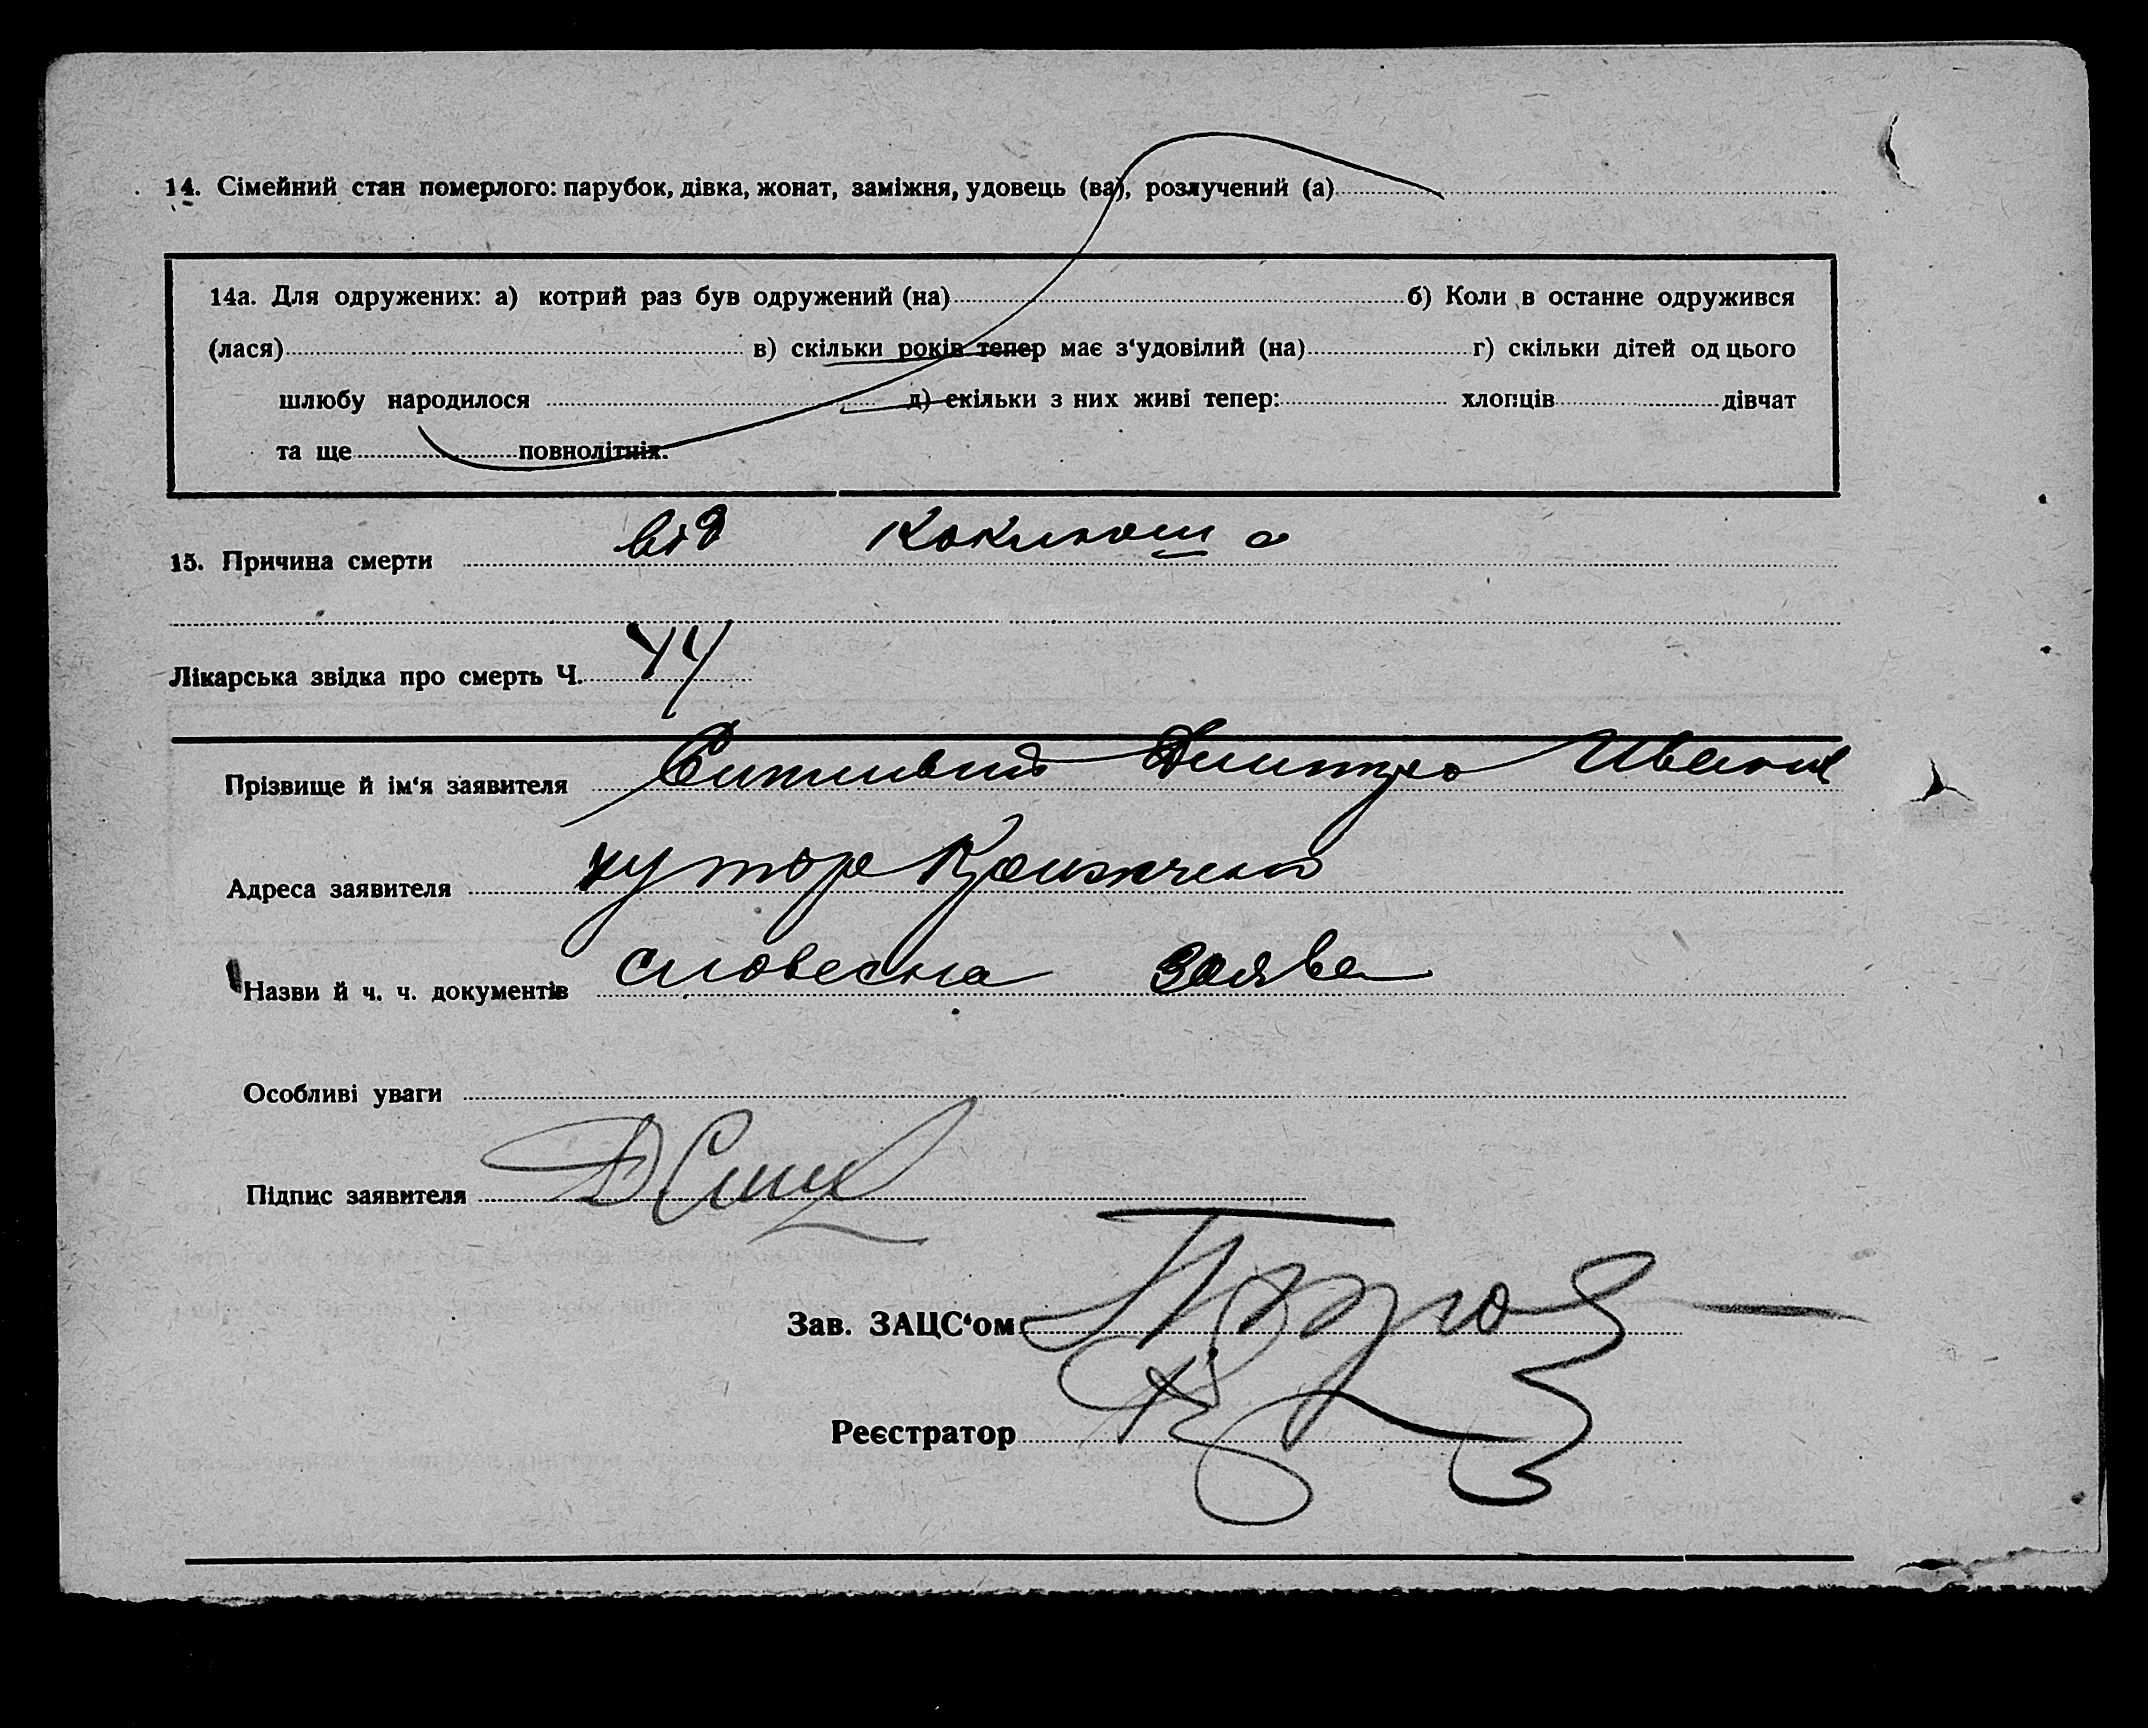 14. Сімейний стан померлого: парубок, дівка, жонат, заміжня, удовець (ва), розлучений (а)
14а. Для одружених: а) котрий раз був одружений (на) б) Коли в останнє одружився
(лася) в) скільки років тепер має з‘удовілий (на) г) скільки дітей од цього
шлюбу народилося д) скільки з них живі тепер: хлопців дівчат
та ще повнолітніх.
15. Причина смерти від коклюша
Лікарська звідка про смерть Ч. 44
Прізвище й ім‘я заявителя Дмитро
Адреса заявителя хутор
Назви й ч. ч. документів словесна заява
Особливі уваги
Підпис заявителя
Зав. ЗАЦС‘ом
Реєстратор